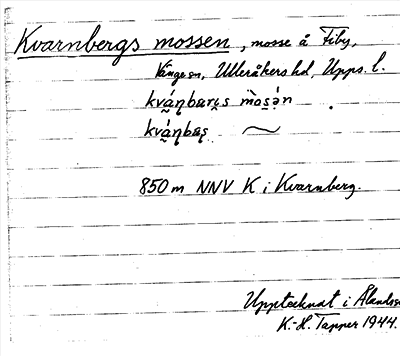 Kvarnbergs mossen, mosse å Fiby,
Vänge sn, Ulleråkers hd, Upps. l.
850 m NNV K i Kvarnberg.
Upptecknat i Ålands
K.-H. Tapper 1944.